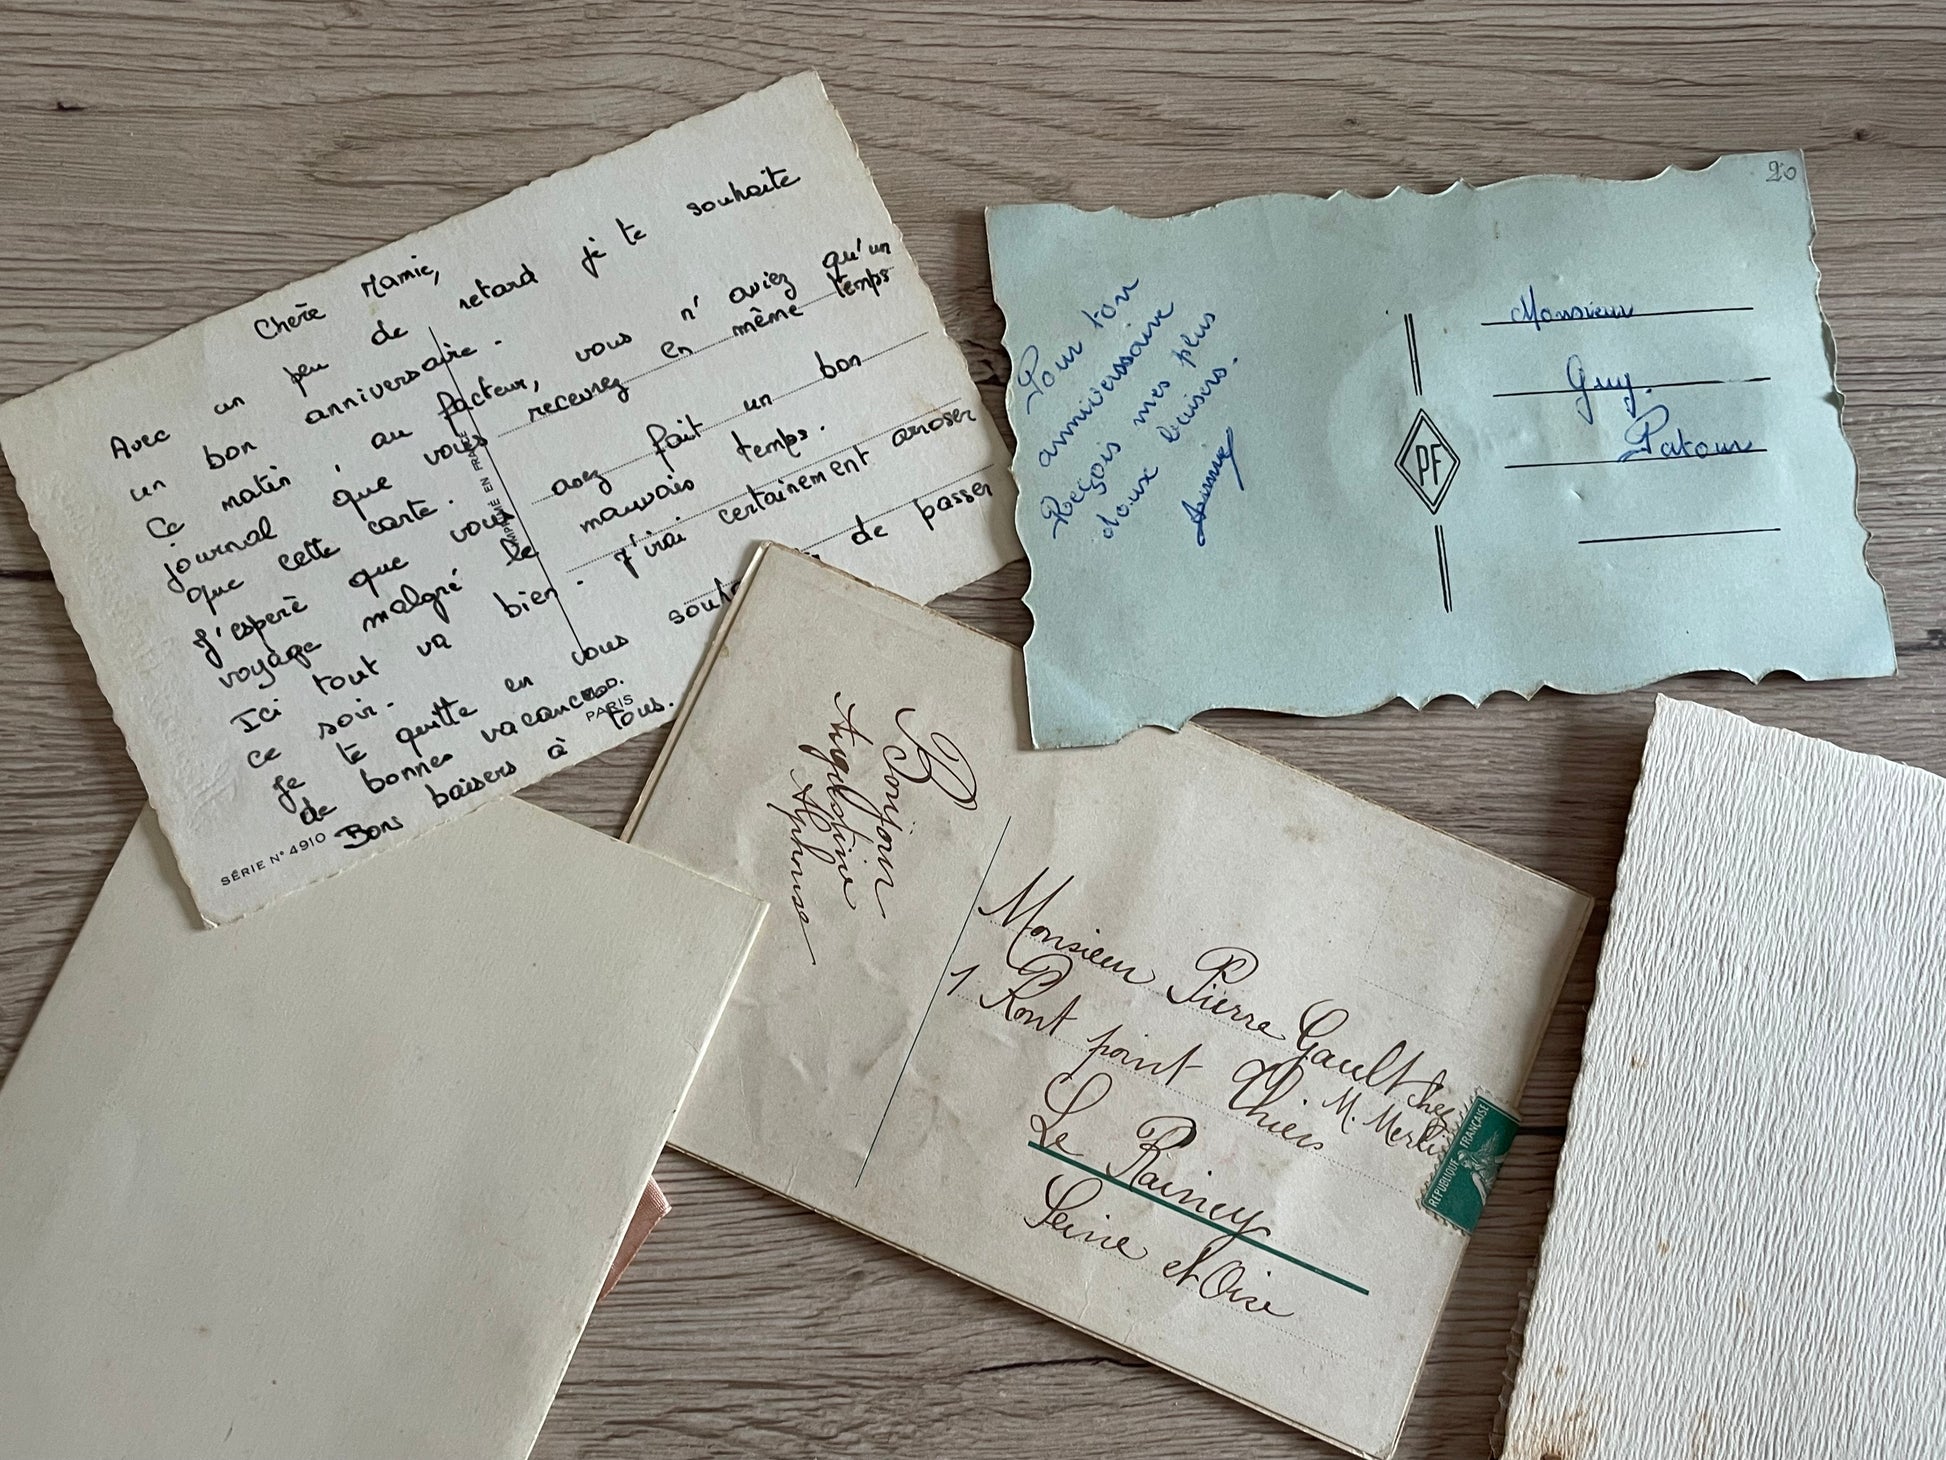 Chère Mamie,
Avec un peu de retard je te souhaite
un bon anniversaire.
Ce matin au facteur, vous n'aviez qu'un
journal que vous recevrez en même temps
que cette carte.
J'espère que vous avez fait un bon
voyage malgré le mauvais temps.
Ici tout va bien. J'irai certainement arroser
ce soir.
Je te quitte en vous de passer
de bonnes vacances.
Bons baisers à tous.
SÉRIE N° 4910
IMPRIMÉ EN FRANCE
PARIS
20
Pour ton
anniverssaire
Reçois mes plus
doux baisers.
PF
Monsieur
Guy.
Patour
Bonjour
Augustine
Alphonse
Monsieur Pierre Gault chez
M. Merlin
1 Ront point Thiers
Le Raincy
Seine et Oise
REPUBLIQUE FRANÇAISE